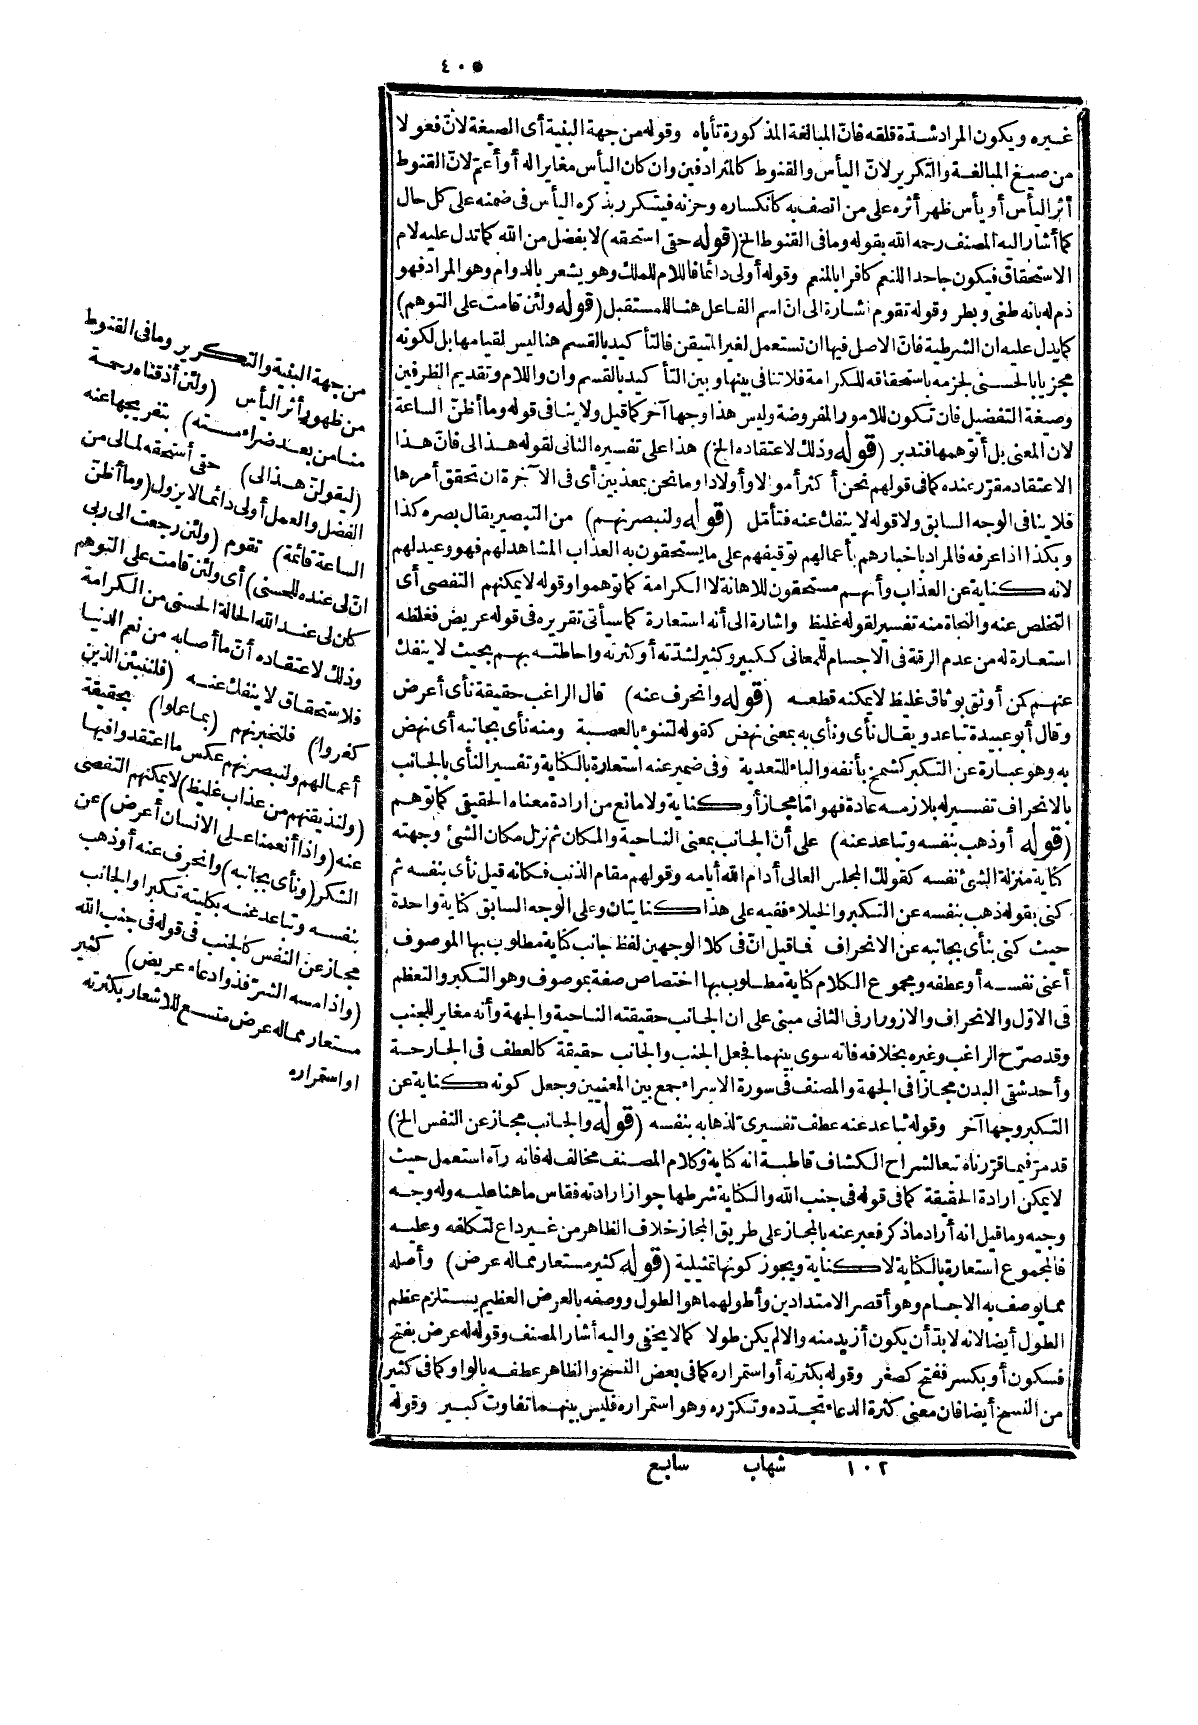 ٤٠٥
غيره ويكون المراد شدّة قلقه فانّ المبالغة المذكورة تأباه وقوله من جهة البنية أى الصيغة لانّ فعولا
من صيغ المبالغة والتكرير لانّ اليأس والقنوط كالمترادفين وان كان اليأس مغايرا له أو أعمّ لانّ القنوط
أثر اليأس أو يأس ظهر أثره على من اتصف به كانكساره وحزنه فيتكرر بذكره اليأس فى ضمنه على كل حال
كما أشار اليه المصنف رحمه الله بقوله وما فى القنوط الخ (قوله حتى استحقه) لا بفضل من الله كما تدل عليه لام
الاستحقاق فيكون جاحدا للنعم كافرا بالمنعم وقوله أولى دائما فاللام للملك وهو يشعر بالدوام وهو المراد فهو
ذم له بانه طغى وبطر وقوله تقوم اشارة الى انّ اسم الفاعل هنا للمستقبل (قوله ولئن قامت على التوهم)
كما يدل عليه ان الشرطية فانّ الاصل فيها ان تستعمل لغير المتيقن فالتأكيد بالقسم هنا ليس لقيامها بل لكونه
مجزيا بالحسنى لجزمه باستحقاقه للكرامة فلا تنافى بينها وبين التأكيد بالقسم وان واللام وتقديم الظرفين
وصيغة التفضيل فان تكون للامور المفروضة وليس هذا وجها آخر كما قيل ولا ينافى قوله وما أظنّ الساعة
لان المعنى بل أتوهمها فتدبر (قوله وذلك لاعتقاده الخ) هذا على تفسيره الثانى لقوله هذا لى فانّ هذا
الاعتقاد مقرّر عنده كما فى قولهم نحن أكثر أموالا وأولادا وما نحن بمعذبين أى فى الآخرة ان تحقق أمرها
فلا ينافى الوجه السابق ولا قوله لا ينفك عنه فتأمّل (قوله ولنبصرنهم) من التبصير يقال بصره كذا
وبكذا اذا عرفه فالمراد باخبارهم بأعمالهم توقيفهم على ما يستحقون به العذاب المشاهد لهم فهو وعيد لهم
لانه كناية عن العذاب وأنهم مستحقون للاهانة لا الكرامة كما توهموا وقوله لا يمكنهم التفصى أى
التخلص عنه والنجاة منه تفسير لقوله غليظ واشارة الى أنه استعارة كما سيأتى تقريره فى قوله عريض فغلظه
استعارة له من عدم الرقة فى الاجسام للمعانى ككبير وكثير لشدّته أو كثرته واحاطته بهم بحيث لا ينفك
عنهم كمن أوثق بوثاق غليظ لا يمكنه قطعه (قوله وانحرف عنه) قال الراغب حقيقة نأى أعرض
وقال أبو عبيدة تباعد ويقال نأى ونأى به بمعنى نهض كقوله لتنوء بالعصبة ومنه نأى بجانبه أى نهض
به وهو عبارة عن التكبر كشمخ بأنفه والباء للتعدية وفى ضمير عنه استعارة بالكناية وتفسير النأى بالجانب
بالانحراف تفسير له بلازمه عادة فهو امّا مجاز أو كناية ولا مانع من ارادة معناه الحقيقى كما توهم
(قوله أو ذهب بنفسه وتباعد عنه) على أن الجانب بمعنى الناحية والمكان ثم نزل مكان الشئ وجهته
كناية منزلة الشئ نفسه كقولك المجلس العالى أدام الله أيامه وقولهم مقام الذئب فكانه قيل نأى بنفسه ثم
كنى بقوله ذهب بنفسه عن التكبر والخيلاء ففيه على هذا كنايتان وعلى الوجه السابق كناية واحدة
حيث كنى بنأى بجانبه عن الانحراف فما قيل انّ فى كلا الوجهين لفظ جانب كناية مطلوب بها الموصوف
أعنى نفسه أو عطفه ومجموع الكلام كناية مطلوب بها اختصاص صفة بموصوف وهو التكبر والتعظم
فى الاوّل والانحراف والازورار فى الثانى مبنى على ان الجانب حقيقته الناحية والجهة وأنه مغاير للجنب
وقد صرّح الراغب وغيره بخلافه فانه سوى بينهما فجعل الجنب والجانب حقيقة كالعطف فى الجارحة
وأحد شقى البدن مجازا فى الجهة والمصنف فى سورة الاسراء جمع بين المعنيين وجعل كونه كناية عن
التكبر وجها آخر وقوله تباعد عنه عطف تفسيرىّ لذهابه بنفسه (قوله والجانب مجاز عن النفس الخ)
قد مرّ فيما قرّرناه تبعا لشراح الكشاف قاطبة انه كناية وكلام المصنف مخالف له فانه رآه استعمل حيث
لا يمكن ارادة الحقيقة كما فى قوله فى جنب الله والكناية شرطها جواز ارادته فقاس ما هنا عليه وله وجه
وجيه وما قيل انه أراد ما ذكر فعبر عنه بالمجاز على طريق المجاز خلاف الظاهر من غير داع لتكلفه وعليه
فالمجموع استعارة بالكناية لا كناية ويجوز كونها تمثيلية (قوله كثير مستعار مما له عرض) وأصله
مما يوصف به الاجسام وهو أقصر الامتدادين وأطولهما هو الطول ووصفه بالعرض العظيم يستلزم عظم
الطول أيضا لانه لا بدّ أن يكون أزيد منه والا لم يكن طولا كما لا يخفى واليه أشار المصنف وقوله له عرض بفتح
فسكون أو بكسر ففتح كصغر وقوله بكثرته أو استمراره كما فى بعض النسخ والظاهر عطفه بالواو كما فى كثير
من النسخ أيضا فان معنى كثرة الدعاء تجدّده وتكرّره وهو استمراره فليس بينهما تفاوت كبير وقوله
من جهة البنية والتكرير وما فى القنوط
من ظهور أثر اليأس (ولئن أذقناه رحمة
منا من بعد ضراء مسته) بتفريجها عنه
(ليقولنّ هذا لى) حتى أستحقه لمالى من
الفضل والعمل أولى دائما لا يزول (وما أظنّ
الساعة قائمة) تقوم (ولئن رجعت الى ربى
انّ لى عنده للحسنى) أى ولئن قامت على التوهم
كان لى عند الله الحالة الحسنى من الكرامة
وذلك لاعتقاده أنّ ما أصابه من نعم الدنيا
فلاستحقاق لا ينفك عنه (فلننبئنّ الذين
كفروا) فلنخبرنهم (بما عملوا) بحقيقة
أعمالهم ولنبصرنهم عكس ما اعتقدوا فيها
(ولنذيقنهم من عذاب غليظ) لا يمكنهم التفصى
عنه (واذا أنعمنا على الانسان أعرض) عن
الشكر (ونأى بجانبه) وانحرف عنه أو ذهب
بنفسه وتباعد عنه بكليته تكبرا والجانب
مجاز عن النفس كالجنب فى قوله فى جنب الله
(واذا مسه الشرّ فذو دعاء عريض) كثير
مستعار مما له عرض متسع للاشعار بكثرته
او استمراره
١٠٢ شهاب سابع